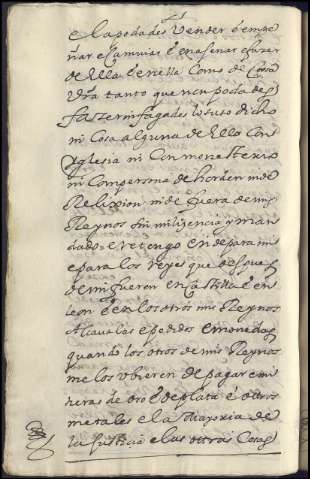 e la podades Vender é empe
ñar e Camuiar é enaJenar e hazer
de ella é en ella Como de Cosa
Vra tanto que non podades
faser ni fagades lo suso dicho
ni Cosa alguna de ello Con
Yglesia ni Con monesterio
ni Con persona de horden ni de
Relixion ni de fuera de mis
Reynos sin mi liçencia y man
dado e retengo en de para mi
e para los reyes que despues
de mi fueren en Castilla é en
leon é en los otros mis Reynos
Alcaualas e pedidos e monedas
quando los otros de mis Reynos
me los ubieren de pagar e mi
neras de oro é de plata é otros
metales e la mayoria de
la Justicia e las otras Cosas